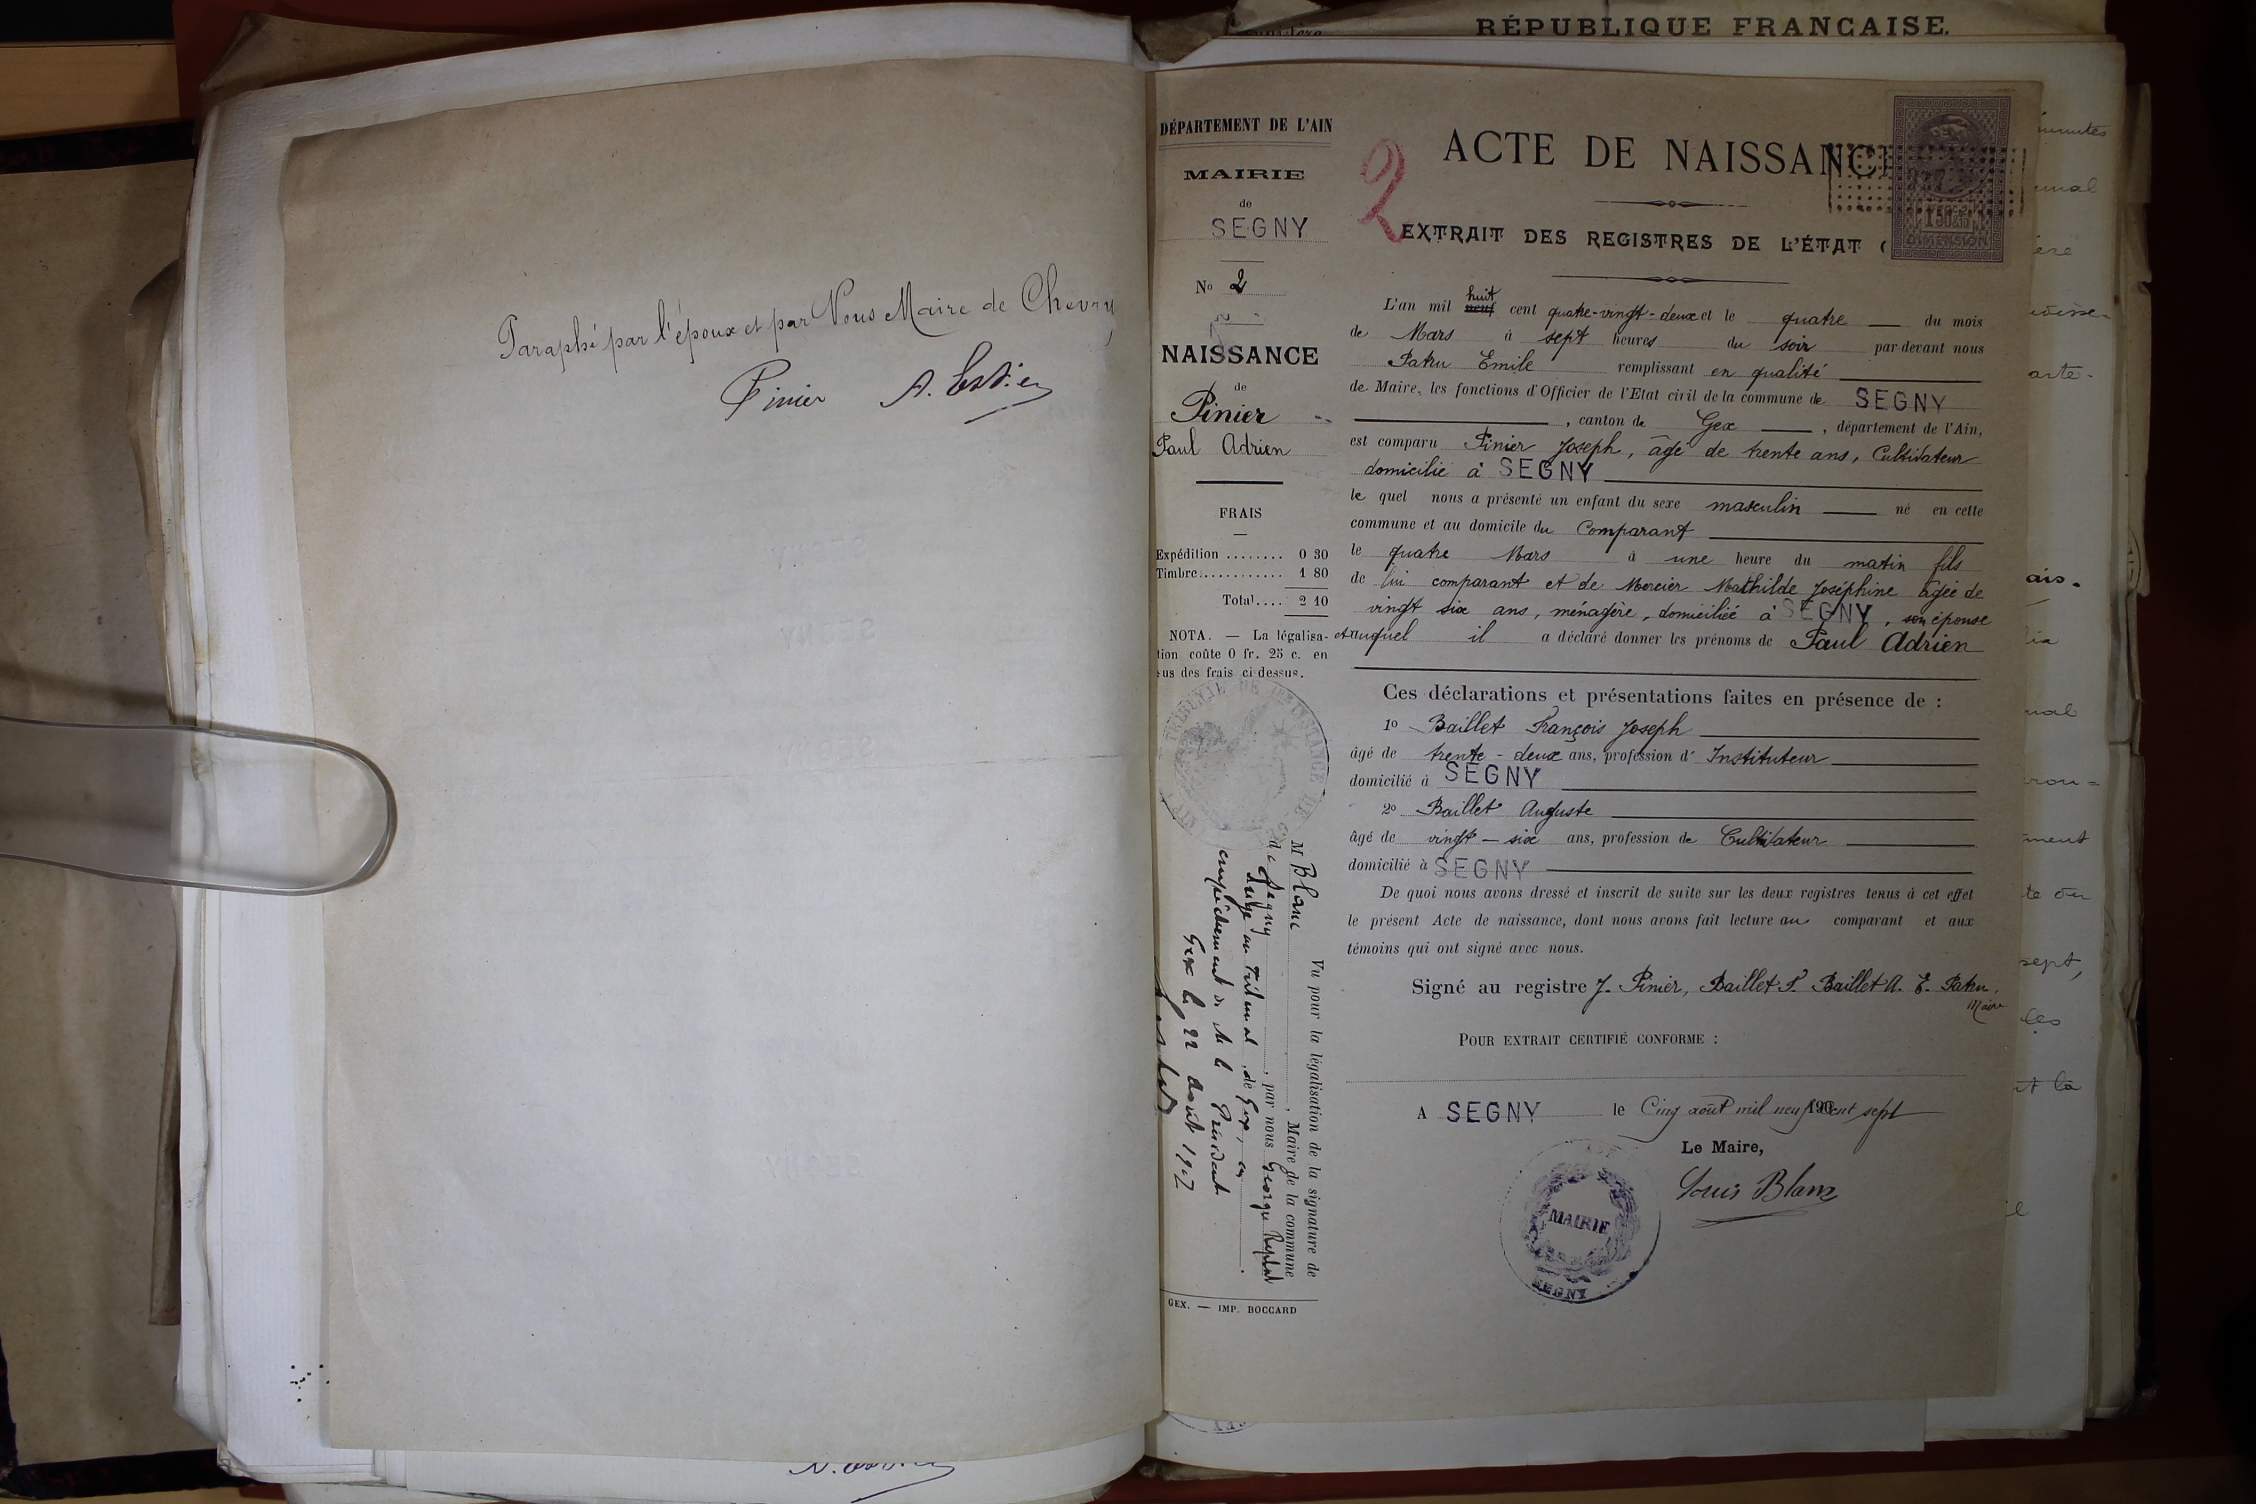 RÉPUBLIQUE FRANÇAISE.
Paraphé par l'époux et par Nous Maire de Chevry
Pinier
DÉPARTEMENT DE L'AIN
MAIRIE
de
SEGNY
No 2
NAISSANCE
de
Pinier
Paul Adrien
FRAIS
Expédition ........ 0 30
Timbre............ 1 80
Total.... 2 10
NOTA. — La légalisa-
tion coûte 0 fr. 25 c. en
us des frais ci-dessus.
Vu pour la légalisation de la signature de
M Blanc, Maire de la commune
de Segny, par nous George
Juge au Tribunal de Gex, en
empêchement de M. le Président
Gex le 22 août 1907
GEX. — IMP. BOCCARD
2
ACTE DE NAISSANC
EXTRAIT DES REGISTRES DE L'ÉTAT
DIMENSION
huit
L'an mil neuf cent quatre-vingt-deux et le quatre du mois
de Mars à sept heures du soir par-devant nous
Emile remplissant en qualité
de Maire, les fonctions d'Officier de l'Etat civil de la commune de SEGNY
, canton de Gex, département de l'Ain,
est comparu Pinier Joseph, âgé de trente ans, Cultivateur
domicilié à SEGNY
le quel nous a présenté un enfant du sexe masculin né en cette
commune et au domicile du Comparant
le quatre Mars à une heure du matin fils
de lui comparant et de Mercier Mathilde Joséphine âgée de
vingt six ans, ménagère, domiciliée à SEGNY, son épouse
et auquel il a déclaré donner les prénoms de Paul Adrien
Ces déclarations et présentations faites en présence de :
1o Baillet François Joseph
âgé de trente-deux ans, profession d'Instituteur
domicilié à SEGNY
2o Baillet Auguste
âgé de vingt-six ans, profession de Cultivateur
domicilié à SEGNY
De quoi nous avons dressé et inscrit de suite sur les deux registres tenus à cet effet
le présent Acte de naissance, dont nous avons fait lecture au comparant et aux
témoins qui ont signé avec nous.
Signé au registre J. Pinier, Baillet Baillet A. E.
Maire
POUR EXTRAIT CERTIFIÉ CONFORME :
A SEGNY le Cinq août mil neuf 190 cent sept
Le Maire,
Louis Blanc
MAIRIE
SEGNY